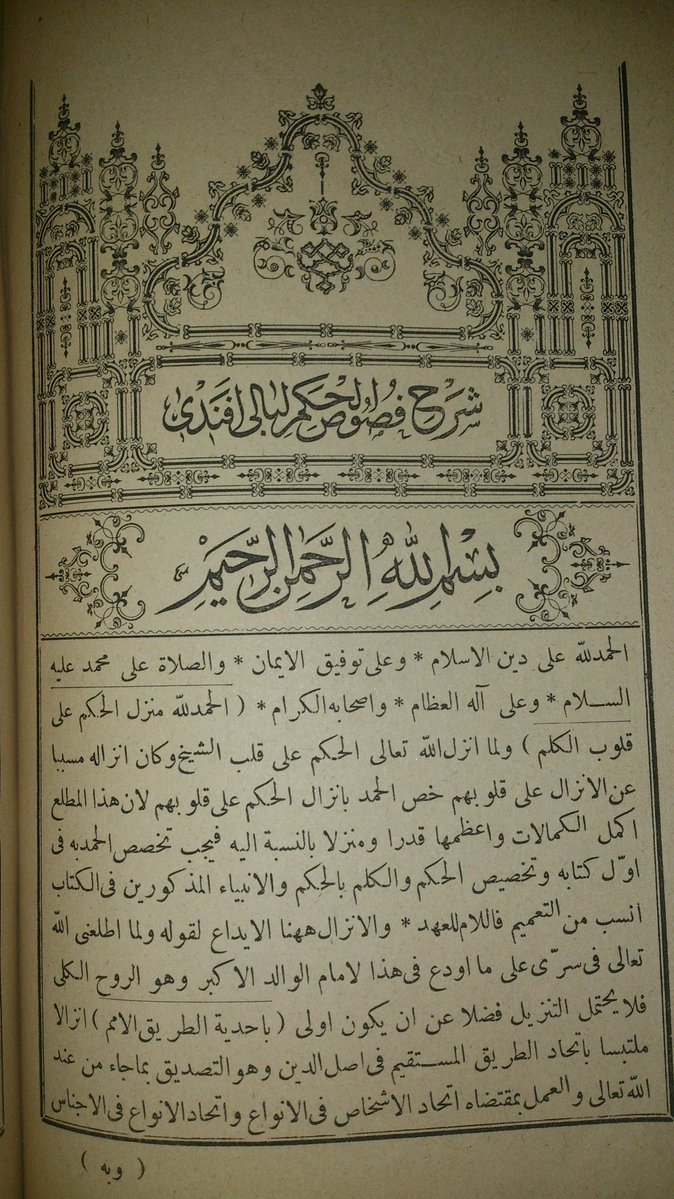 شرح فصوص الحكم لبالى افندى
بسم الله الرحمن الرحيم
الحمدلله على دين الاسلام * وعلى توفيق الايمان * والصلاة على محمد عليه
الســلام * وعلى آله العظام * واصحابه الكرام * ( الحمدلله منزل الحكم على
قلوب الكلم ) ولما انزل الله تعالى الحكم على قلب الشيخ وكان انزاله مسببا
عن الانزال على قلوبهم خص الحمد بانزال الحكم على قلوبهم لان هذا المطلع
اكمل الكمالات واعظمها قدرا ومنزلا بالنسبة اليه فيجب تخصص الحمدبه فى
اوّل كتابه وتخصيص الحكم والكلم بالحكم والانبياء المذكورين فى الكتاب
انسب من التعميم فاللام للعهد * والانزال ههنا الايداع لقوله ولما اطلعنى الله
تعالى فى سرّى على ما اودع فى هذا لامام الوالد الاكبر وهو الروح الكلى
فلا يحتمل التنزيل فضلا عن ان يكون اولى ( باحدية الطريق الامم ) انزالا
ملتبسا باتحاد الطريق المســتقيم فى اصل الدين وهو التصديق بماجاء من عند
الله تعالى والعمل بمقتضاه اتحاد الاشخاص فى الانواع واتحاد الانواع فى الاجناس
( وبه )